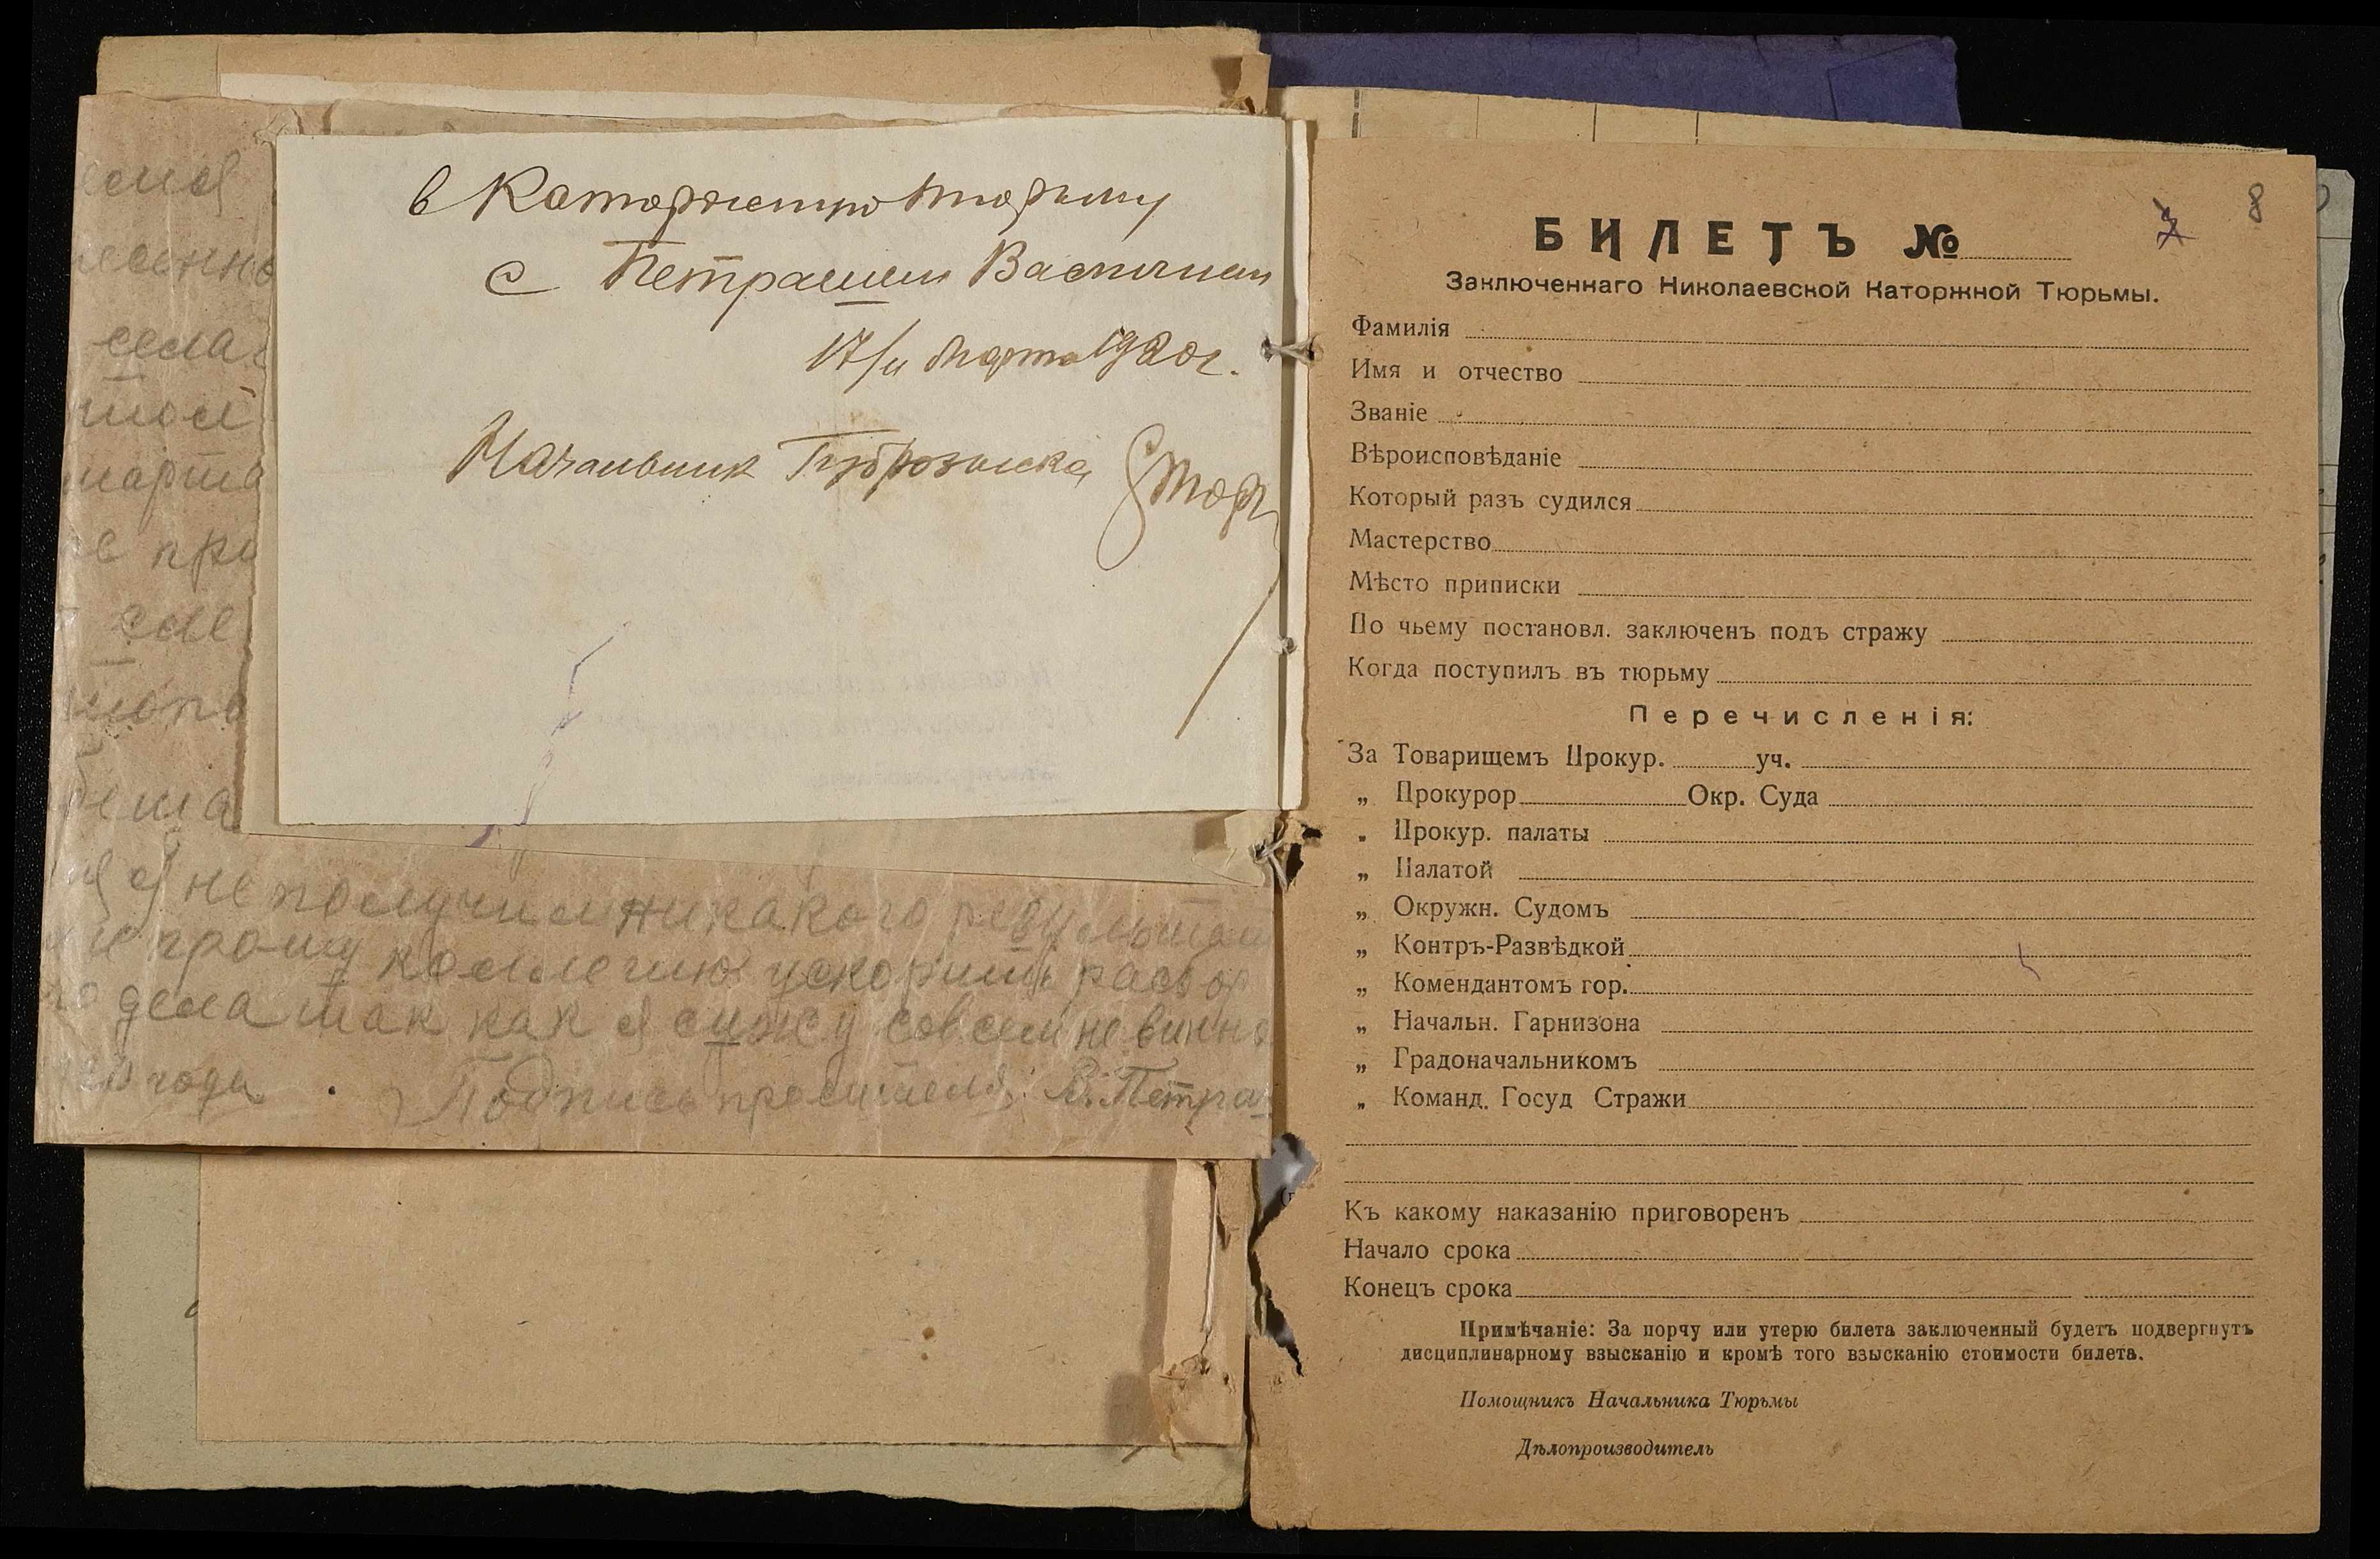 в Каторжную тюрьму
с Петрашем Василием
17/II Марта 1920 г.
Начальник Губрозыска
семя
сена
мой
марта
е при
я не получил никакого результат
прошу коллегию ускорить разбор
дела так как я сижу совсем невинно
года. Подпись просителя: В. Петра
8
БИЛЕТЪ №
Заключеннаго Николаевской Каторжной Тюрьмы.
Фамилія
Имя и отчество
Званіе
Вѣроисповѣданіе
Который разъ судился
Мастерство
Мѣсто приписки
По чьему постановл. заключенъ подъ стражу
Когда поступилъ въ тюрьму
Перечисленія:
За Товарищемъ Прокур. уч.
„ Прокурор Окр. Суда
„ Прокур. палаты
„ Палатой
„ Окружн. Судомъ
„ Контръ-Развѣдкой
„ Комендантомъ гор.
„ Начальн. Гарнизона
„ Градоначальникомъ
„ Команд. Госуд Стражи
Къ какому наказанію приговоренъ
Начало срока
Конецъ срока
Примѣчаніе: За порчу или утерю билета заключенный будетъ подвергнутъ
дисциплинарному взысканію и кромѣ того взысканію стоимости билета.
Помощникъ Начальника Тюрьмы
Дѣлопроизводитель